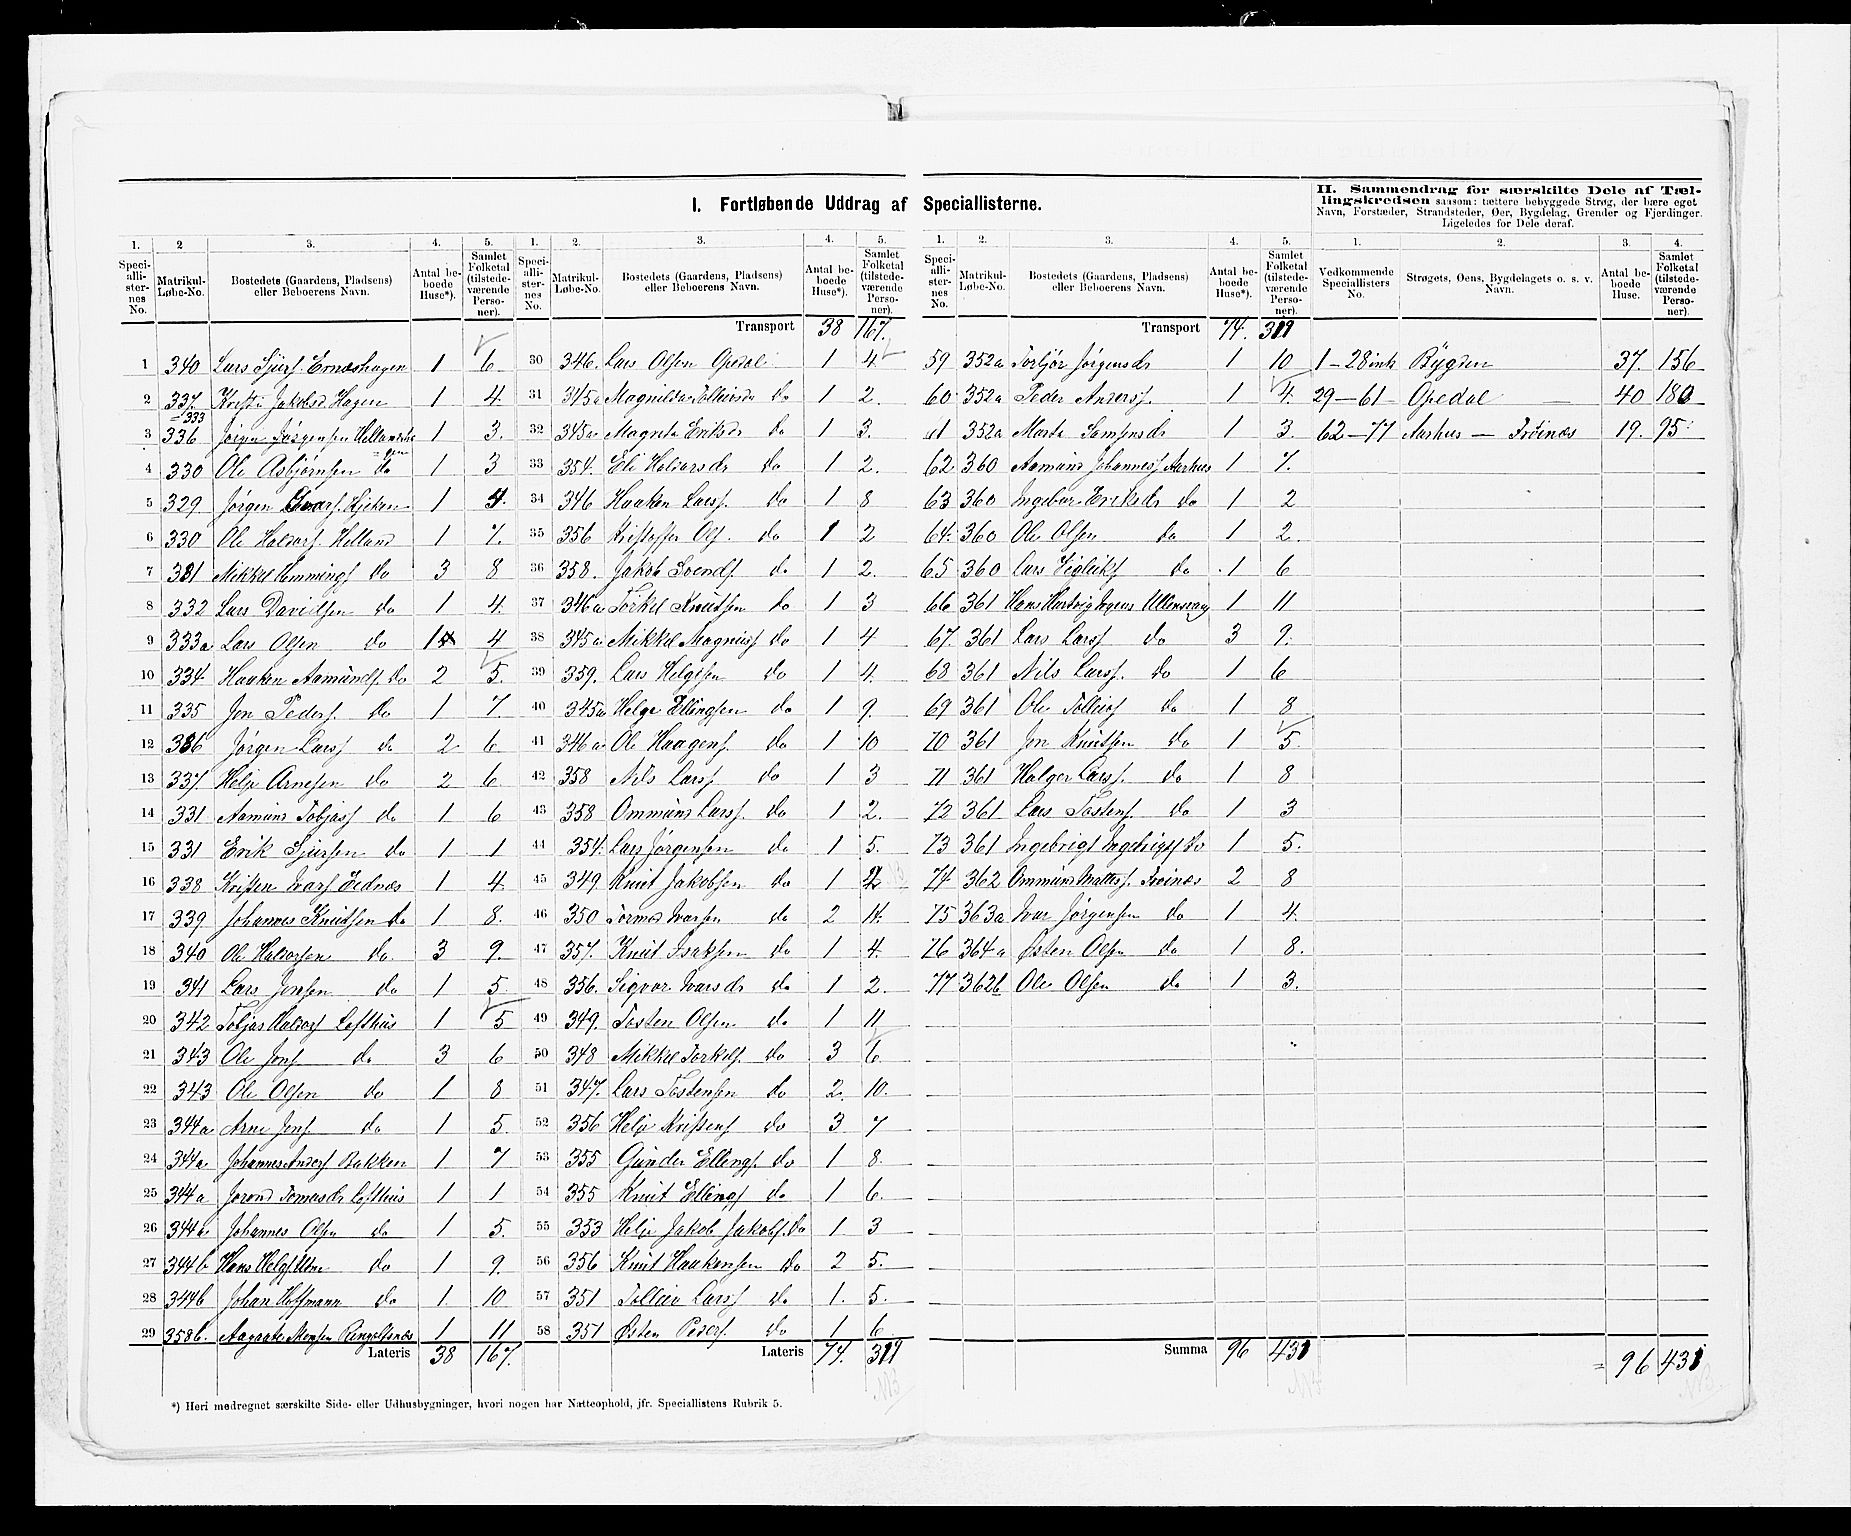 I. Fortløbende Uddrag af Speciallisterne.
1. 2 3. 4. 5.
Speciallisternes No. Matrikul-Løbe-No. Bostedets (Gaardens, Pladsens) eller Beboerens Navn. Antal beboede Huse*). Samlet Folketal (tilstedeværende Personer).
1 340 Lars Sjurs. Ernæshagen 1 6
2 337 Kristi Jakobsd. Hagen 1 4
333
3 336 Jørgen Jørgensen 1 3.
4 330 Ole Asbjørnsen do 1 3
5 329 Jørgen Hjeken 1 4.
6 330 Ole Haldors. Helland 1 7.
7 331 Mikkel Hemmings. do 3 8
8 332 Lars Davidsen do 1 4.
9 333a Lars Olsen do 1 4
10 334 Haaken Aamunds. do 2 5.
11 335 Jon Peders. do 1 7.
12 336 Jørgen Larss. do 2 6
13 337. Helje Arnesen do 2 6
14 331 Aamund Tobjass. do 1 6
15 331 Erik Sjursen do 1 1
16 338 Kristen Ivars. Jednæs 1 4.
17 339 Johannes Knudsen do 1 8.
18 340 Ole Haldorsen do. 3 9.
19 341 Lars Jensen do 1 5.
20 342 Tobjas Haldors. Lofthus 1 5
21 343 Ole Jons. do 3 6
22 343 Ole Olsen do 1 8
23 344a Arne Jons. do 1 5.
24 344a. Johannes Anders. Bakken 1 7
25 344a Jorond Tomasdr. Lofthus 1 1
26 344a Johannes Olsen do 1 5.
27 344b Hans Helgs. Utne do 1 9.
28 344b Johan Hoffmann do 1. 10
29 358b. Aagaate Monsen Ringelsnæs 1 11
Lateris 38 167.
1. 2. 3. 4. 5.
Speciallisternes No. Matrikul-Løbe-No. Bostedets (Gaardens, Pladsens) eller Beboerens Navn. Antal beboede Huse*). Samlet Folketal (tilstedeværende Personer).
Transport 38 167.
30 346. Lars Olsen Opedal 1 4
31 345a Magnilda Tolleivsdr do 1 2.
32 345a. Magnita Eriksdr do 1 3.
33 354. Eli Haldorsdr do 1 2.
34 346 Haaken Larss. do 1 8
35 356 Kristoffer Ols. do 1 2
36 358. Jakob Svends. do 1 2.
37 346a Torkel Knudsen do 1 3
38 345a Mikkel Magnuss. do 1 4
39 359. Lars Helgesen do 1 4.
40 345a Helge Ellingsen do 1 9.
41 346a. Ole Haagens. do 1 10
42 358 Nils Larss. do 1 3
43 358 Ommund Larss. do 1 2.
44 354. Lars Jørgensen do 1 5.
45 349. Knut Jakobsen do 1 2
46 350 Tormod Ivarsen do 2 4.
47 357. Knut Isaksen do 1 4.
48 356. Sigvor Ivarsdr do 1 2.
49 349. Tosten Olsen do 1 11
50 348 Mikkel Torkels. do 3 6.
51 347. Lars Tostensen do 2. 10.
52 356 Helje Kristens. do 3 7
53 355 Gunder Ellings. do 1 8.
54 355 Knut Ellings. do 1 6.
55 353 Helje Jakob Jakobs. do 1. 3
56 356 Knut Haakensen do 2 5.
57 351 Tolleiv Larss. do 1. 5.
58 351 Østen Peders. do 1 6.
Lateris 74. 319
1. 2. 3. 4. 5.
Speciallisternes No. Matrikul-Løbe-No. Bostedets (Gaardens, Pladsens) eller Beboerens Navn. Antal beboede Huse*). Samlet Folketal (tilstedeværende Personer).
Transport 74. 319
59 352a Torbjør Jørgensdr 1 10
60 352a Peder Anderss. 1 4.
61 352a Marta Samsonsdr 1 3.
62 360 Aamund Johanness. Aarhus 1 7.
63 360 Ingebor Eriksdr do 1 2
64. 360 Ole Olsen do 1 2.
65 360 Lars Vigleiks. do 1 6
66 361 Hans Hartvig Ullensvang 1 11
67. 361 Lars Larss. do 3 9.
68 361 Nils Larss. do 1 6
69 361 Ole Tolleivs. do 1 8
70 361 Jon Knutsen do 1 5.
71 361 Holger Larss. do 1 8
72 361 Lars Tostens. do 1 3
73 361 Ingebrigt Ingebrigts. do 1 5.
74 362 Ommund Mattiss. Froinæs 2 8
75 363a Ivar Jørgensen do 1 4.
76 364a Østen Olsen do 1 8.
77 362b Ole Olsen do 1 3.
Summa 96 431
II. Sammendrag for særskilte Dele af Tællingskredsen saasom: tættere bebyggede Strøg, der bære eget Navn, Forstæder, Strandsteder, Øer, Bygdelag, Grender og Fjerdinger. Ligeledes for Dele deraf.
1. 2. 3. 4.
Vedkommende Speciallisters No. Strøgets, Øens, Bygdelagets o. s. v. Navn. Antal beboede Huse. Samlet Folketal (tilstedeværende Personer).
1–28 Bygden 37. 156
29–61 Opedal – 40 180
62–77 Aarhus – Froinæs 19. 95
= 96 431
*) Heri medregnet særskilte Side- eller Udhusbygninger, hvori nogen har Natteophold, jfr. Speciallistens Rubrik 5.